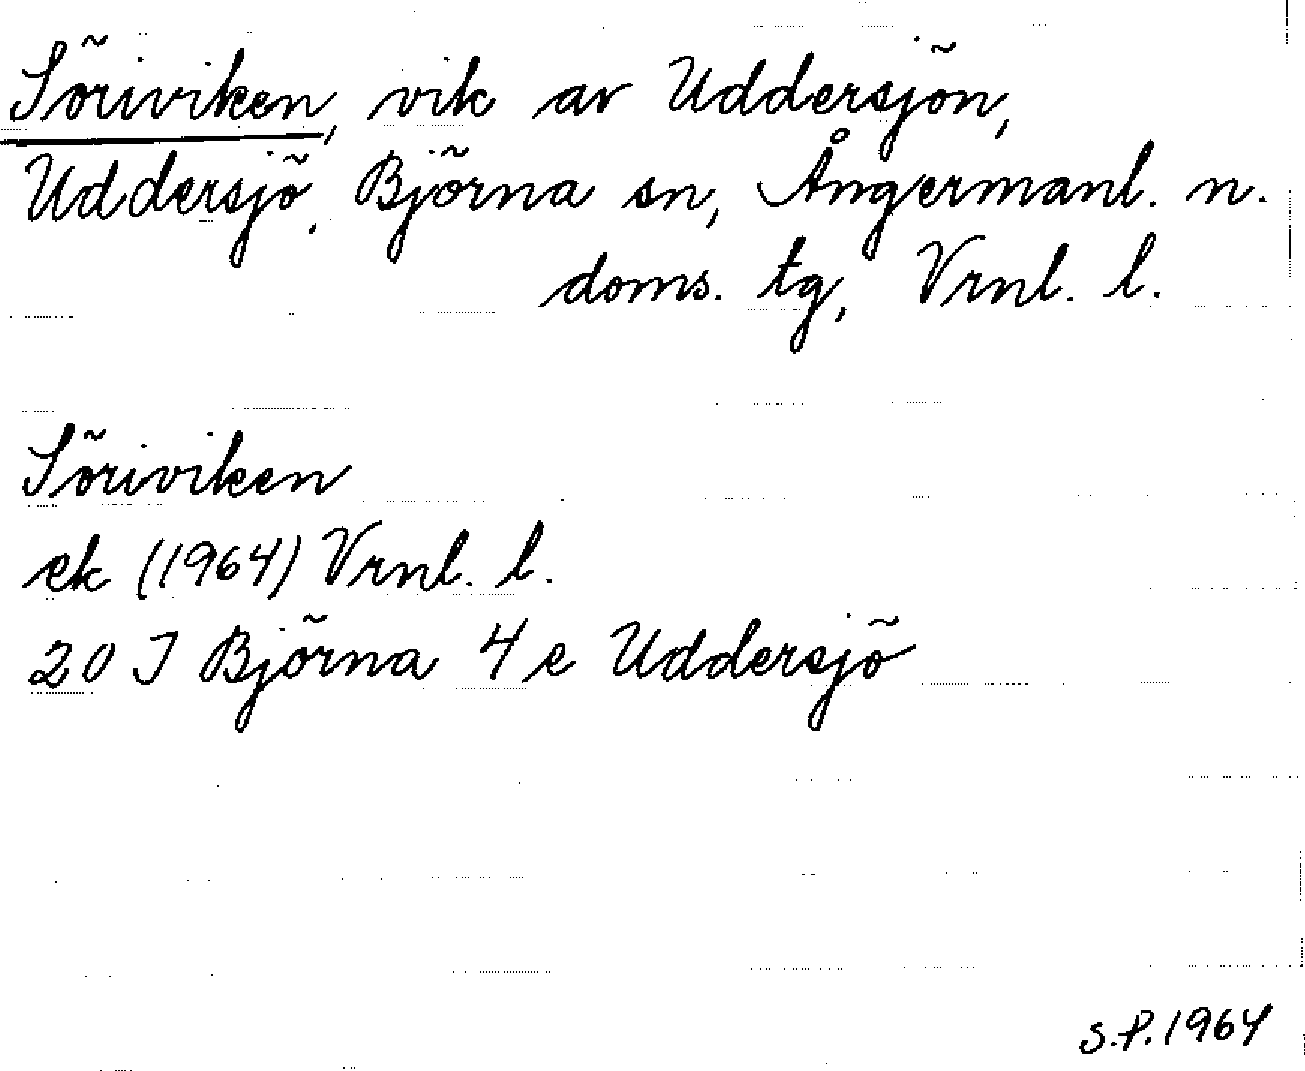 Söriviken, vik av Uddersjön,
Uddersjö, Björna sn, Ångermanl. n.
doms. tg, Vrnl. l.
Söriviken
ek (1964) Vrnl. l.
20 I Björna 4 e Uddersjö
S.P. 1964